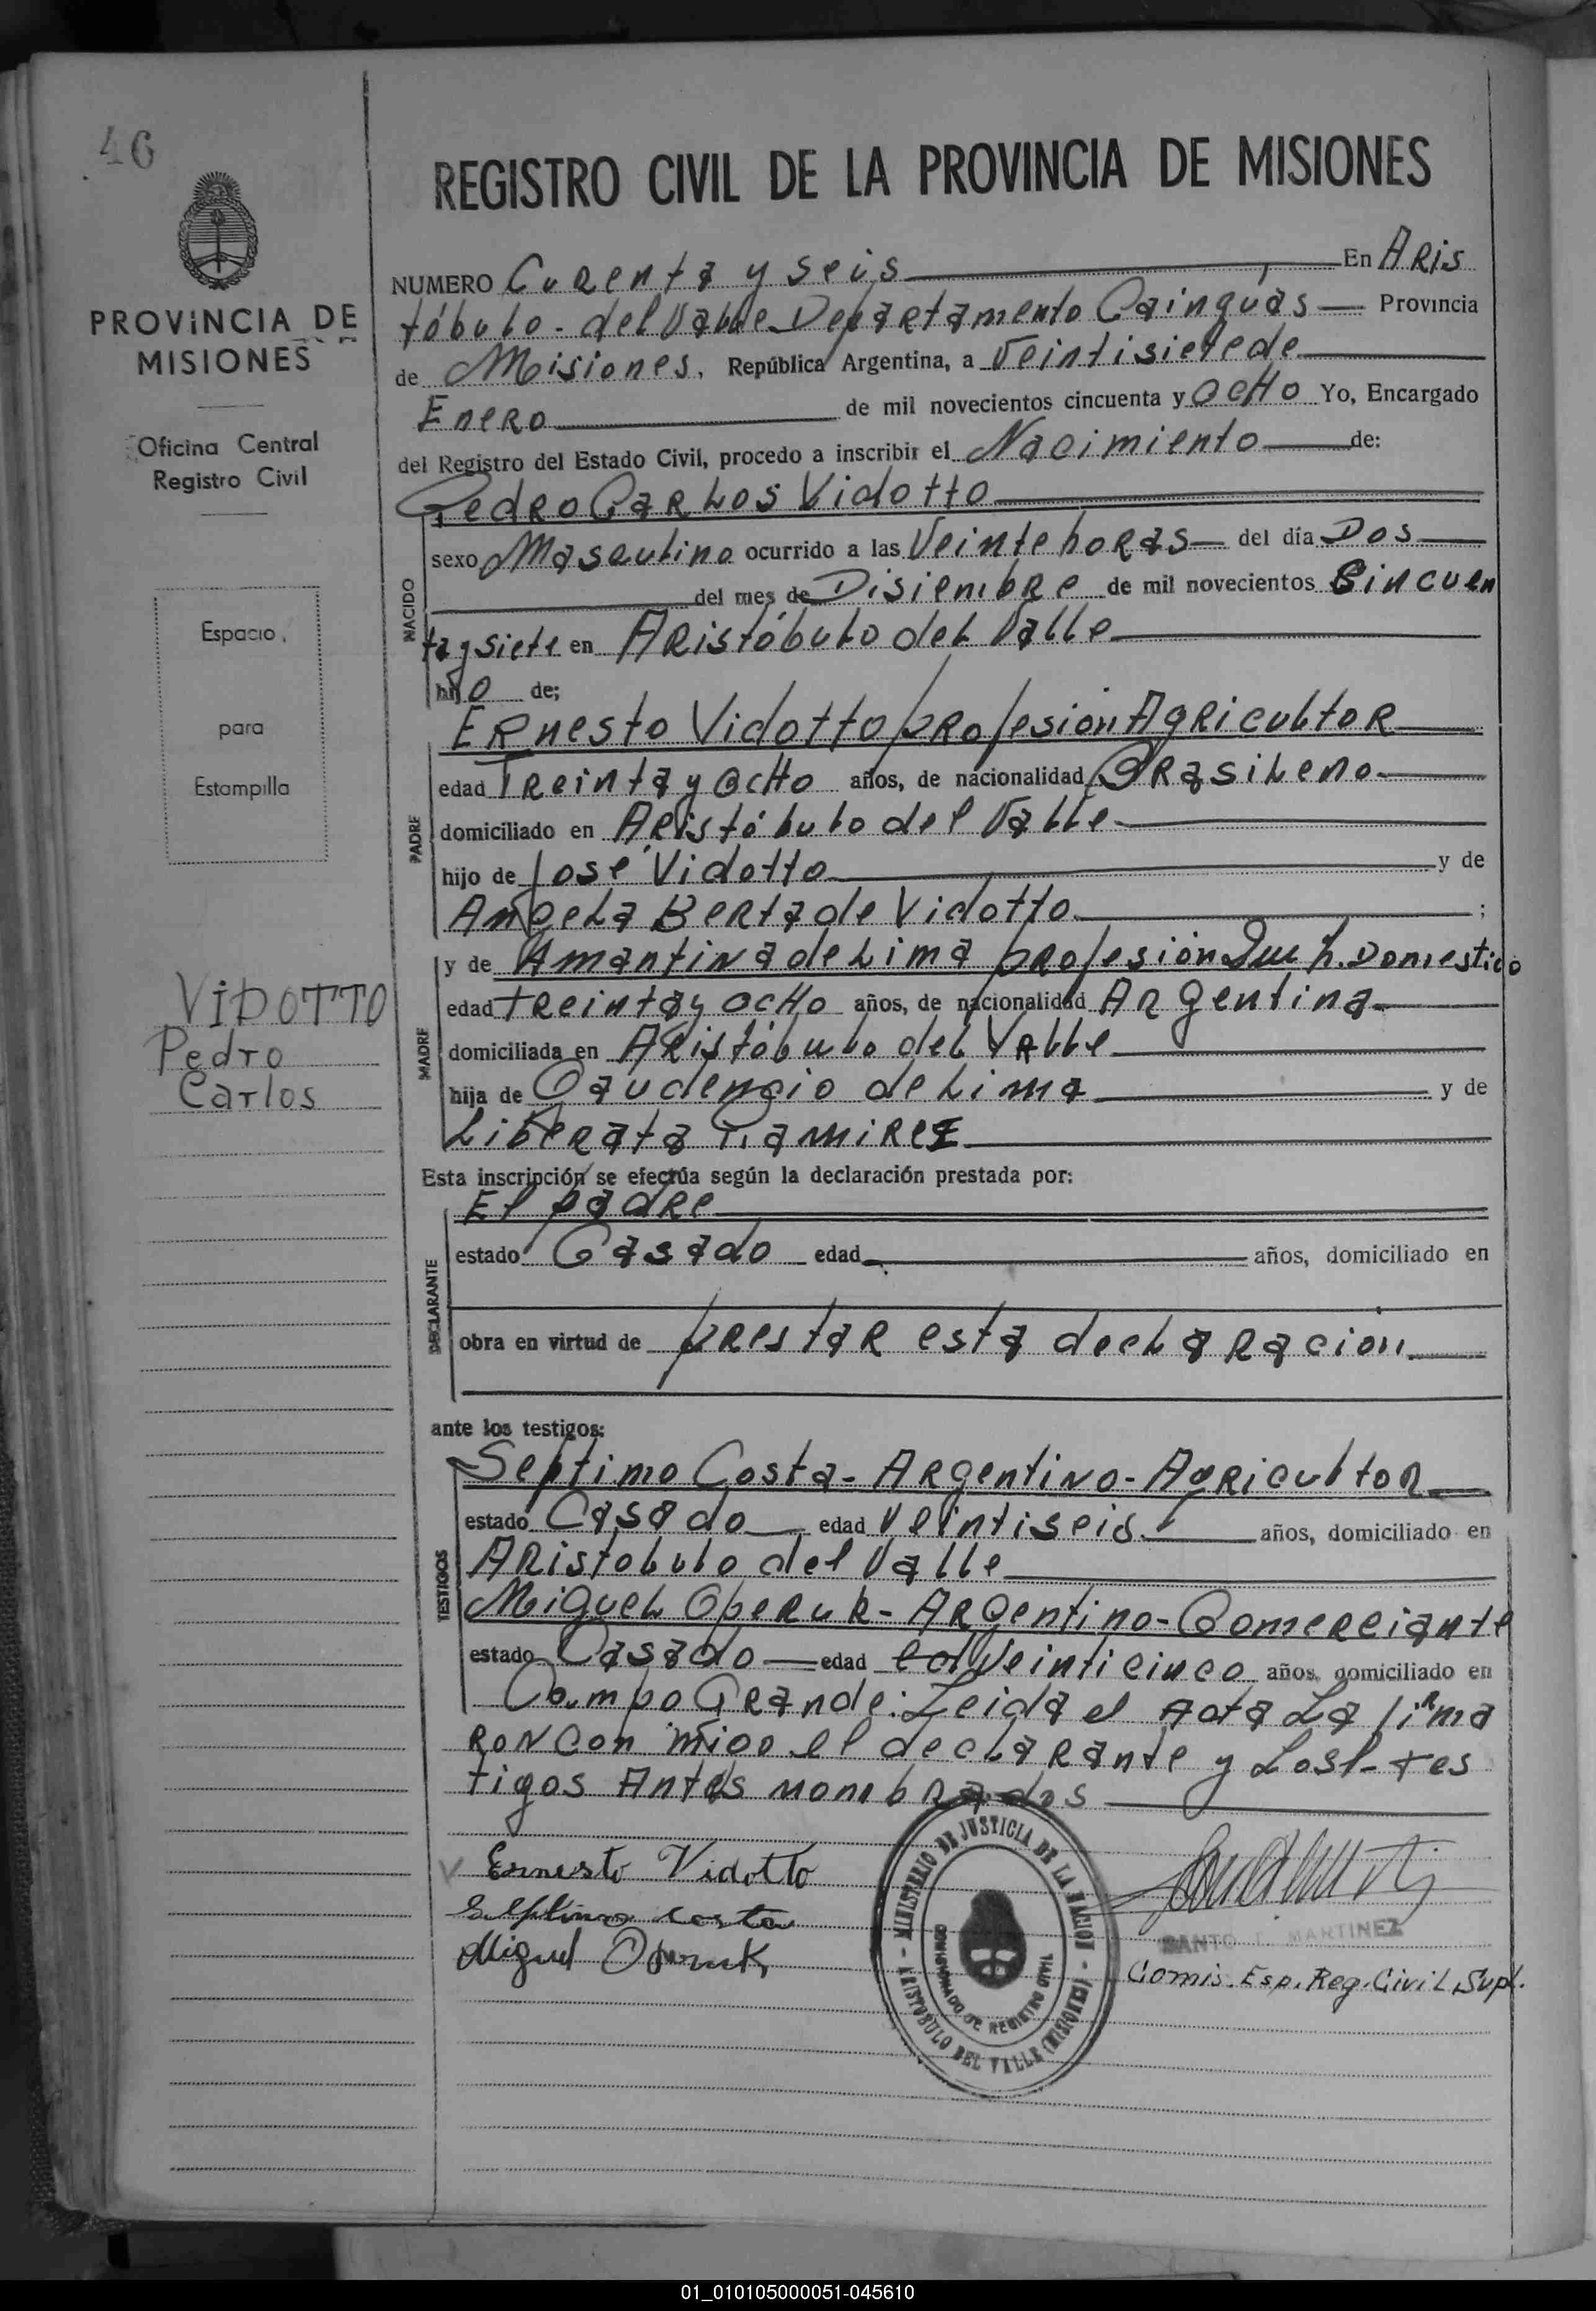 46
PROVINCIA DE
MISIONES
Oficina Central
Registro Civil
Espacio
para
Estampilla
VIDOTTO
Pedro
Carlos
REGISTRO CIVIL DE LA PROVINCIA DE MISIONES
NUMERO Curenta y seis En Aris
tóbulo - del Valle Departamento Cainguás Provincia
de Misiones, República Argentina, a Veintisiete de
Enero de mil novecientos cincuenta y ocHo Yo, Encargado
del Registro del Estado Civil, procedo a inscribir el Nacimiento de:
Pedro Carlos Vidotto
NACIDO
sexo Masculino ocurrido a las Veinte horas del día Dos
del mes de Disiembre de mil novecientos Cincuen
ta y siete en Aristóbulo del Valle
hijo de;
PADRE
Ernesto Vidotto profesión Agricultor
edad Treinta y ocHo años, de nacionalidad Brasileno
domiciliado en Aristóbulo del Valle
hijo de José Vidotto y de
Angela Berta de Vidotto ;
MADRE
y de Amantina de Lima profesión Domestico
edad treinta y ocHo años, de nacionalidad Argentina
domiciliada en Aristóbulo del Valle
hija de Gaudencio de Lima y de
Liberata Ramirez
Esta inscripción se efectúa según la declaración prestada por:
El padre
DECLARANTE
estado Casado edad años, domiciliado en
obra en virtud de prestar esta declaracion
ante los testigos:
TESTIGOS
Septimo Costa - Argentino - Agricultor
estado Casado edad veintiseis años, domiciliado en
Aristobulo del Valle
Miguel Operuk - Argentino - Comerciante
estado Casado edad Veinticinco años, domiciliado en
Campo Grande: Leida el Acta La firma
ron con migo el declarante y Los tes
tigos Antes nombrados
Ernesto Vidotto
Septimo Costa
Miguel Operuk
MINISTERIO DE JUSTICIA DE LA NACION - ARISTOBULO DEL VALLE (MISIONES) -
COMISIONADO DE REGISTRO CIVIL
MARTINEZ
Comis. Esp. Reg. Civil Supl.
01_010105000051-045610